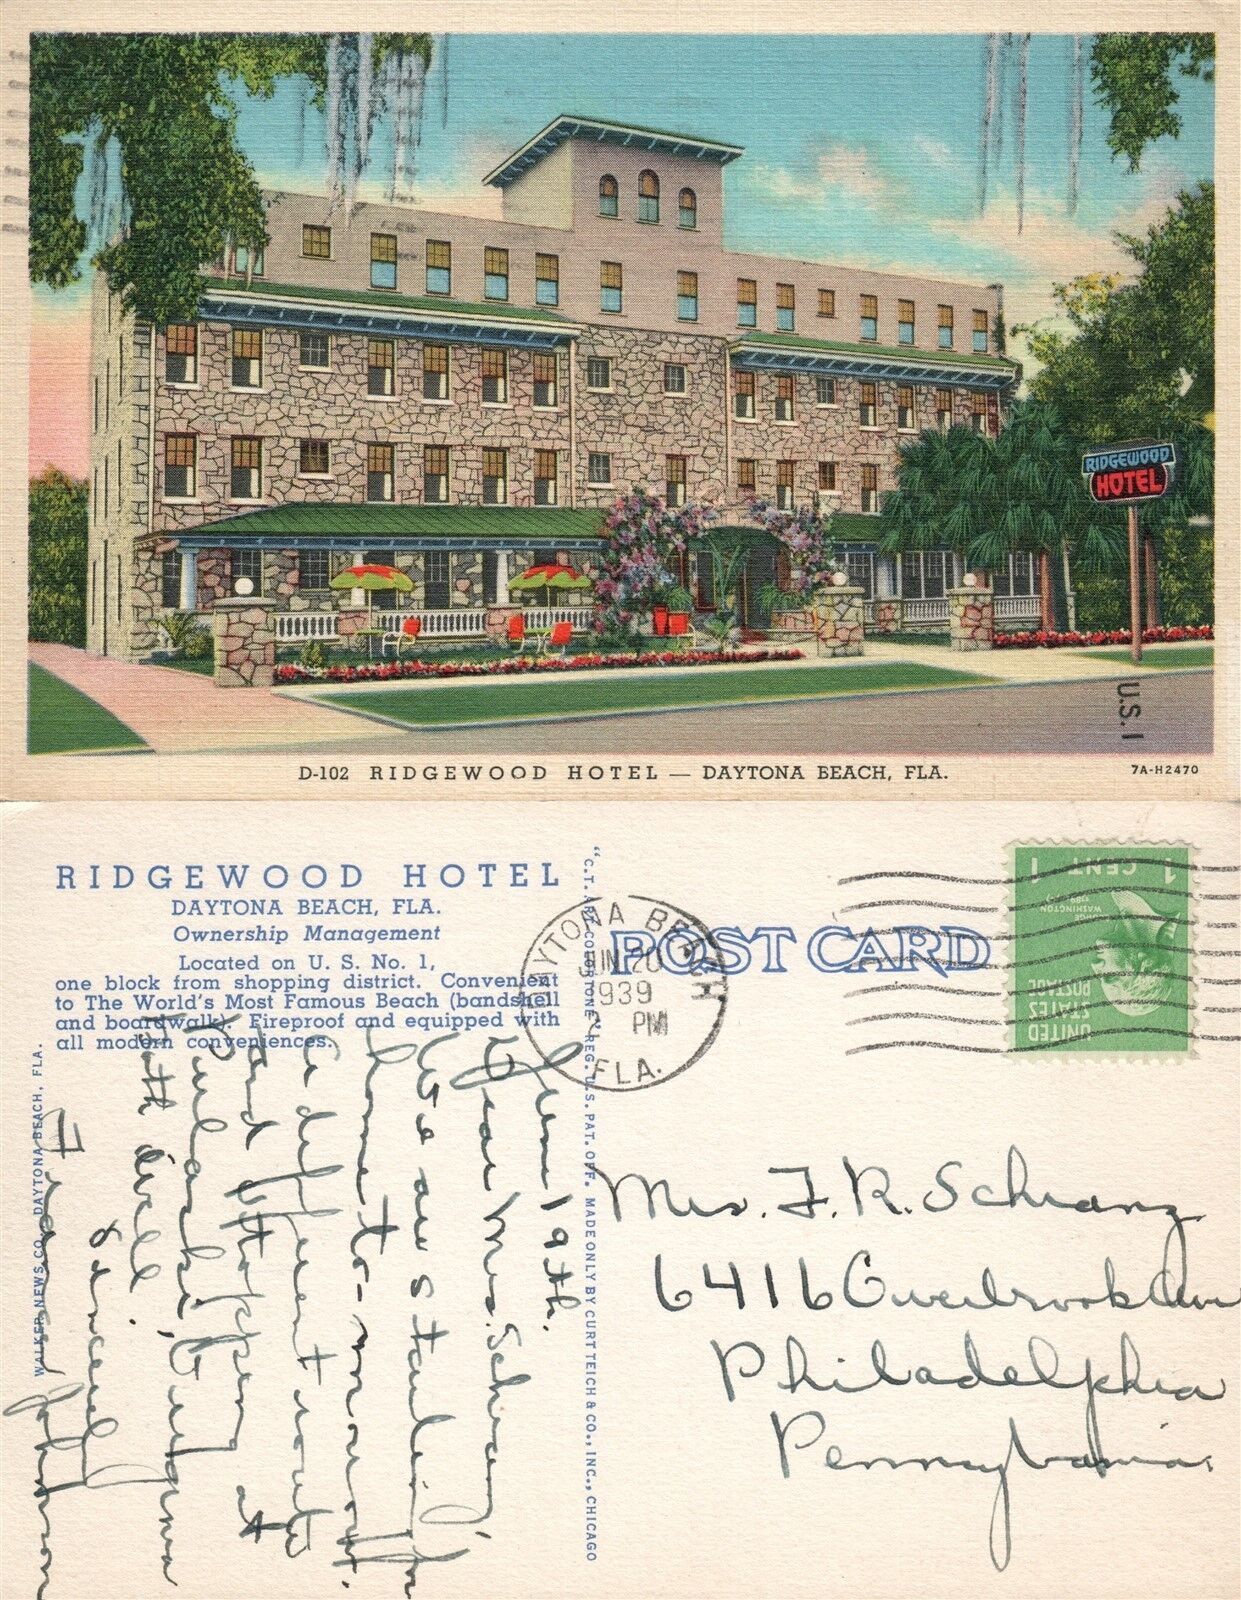 RIDGEWOOD
HOTEL
U.S. 1
D-102 RIDGEWOOD HOTEL — DAYTONA BEACH, FLA.
7A-H2470
RIDGEWOOD HOTEL
DAYTONA BEACH, FLA.
Ownership Management
Located on U. S. No. 1,
one block from shopping district. Convenient
to The World's Most Famous Beach (bandshell
and boardwalk). Fireproof and equipped with
all modern conveniences.
WALKER NEWS CO., DAYTONA BEACH, FLA.
"C.T. ART-COLORTONE" REG. U.S. PAT. OFF. MADE ONLY BY CURT TEICH & CO., INC., CHICAGO
POST CARD
DAYTONA BEACH
JUN 20
1939
PM
FLA.
1 CENT 1
WASHINGTON
UNITED
STATES
POSTAGE
June 19th.
Dear Mrs.
We are starting
home to-morrow.
a different route
and stopping at
Pulaski, Virginia
Both well.
Sincerely
Johnson
Mrs. F. R. Schranz
6416 Overbrook Ave
Philadelphia
Pennsylvania.